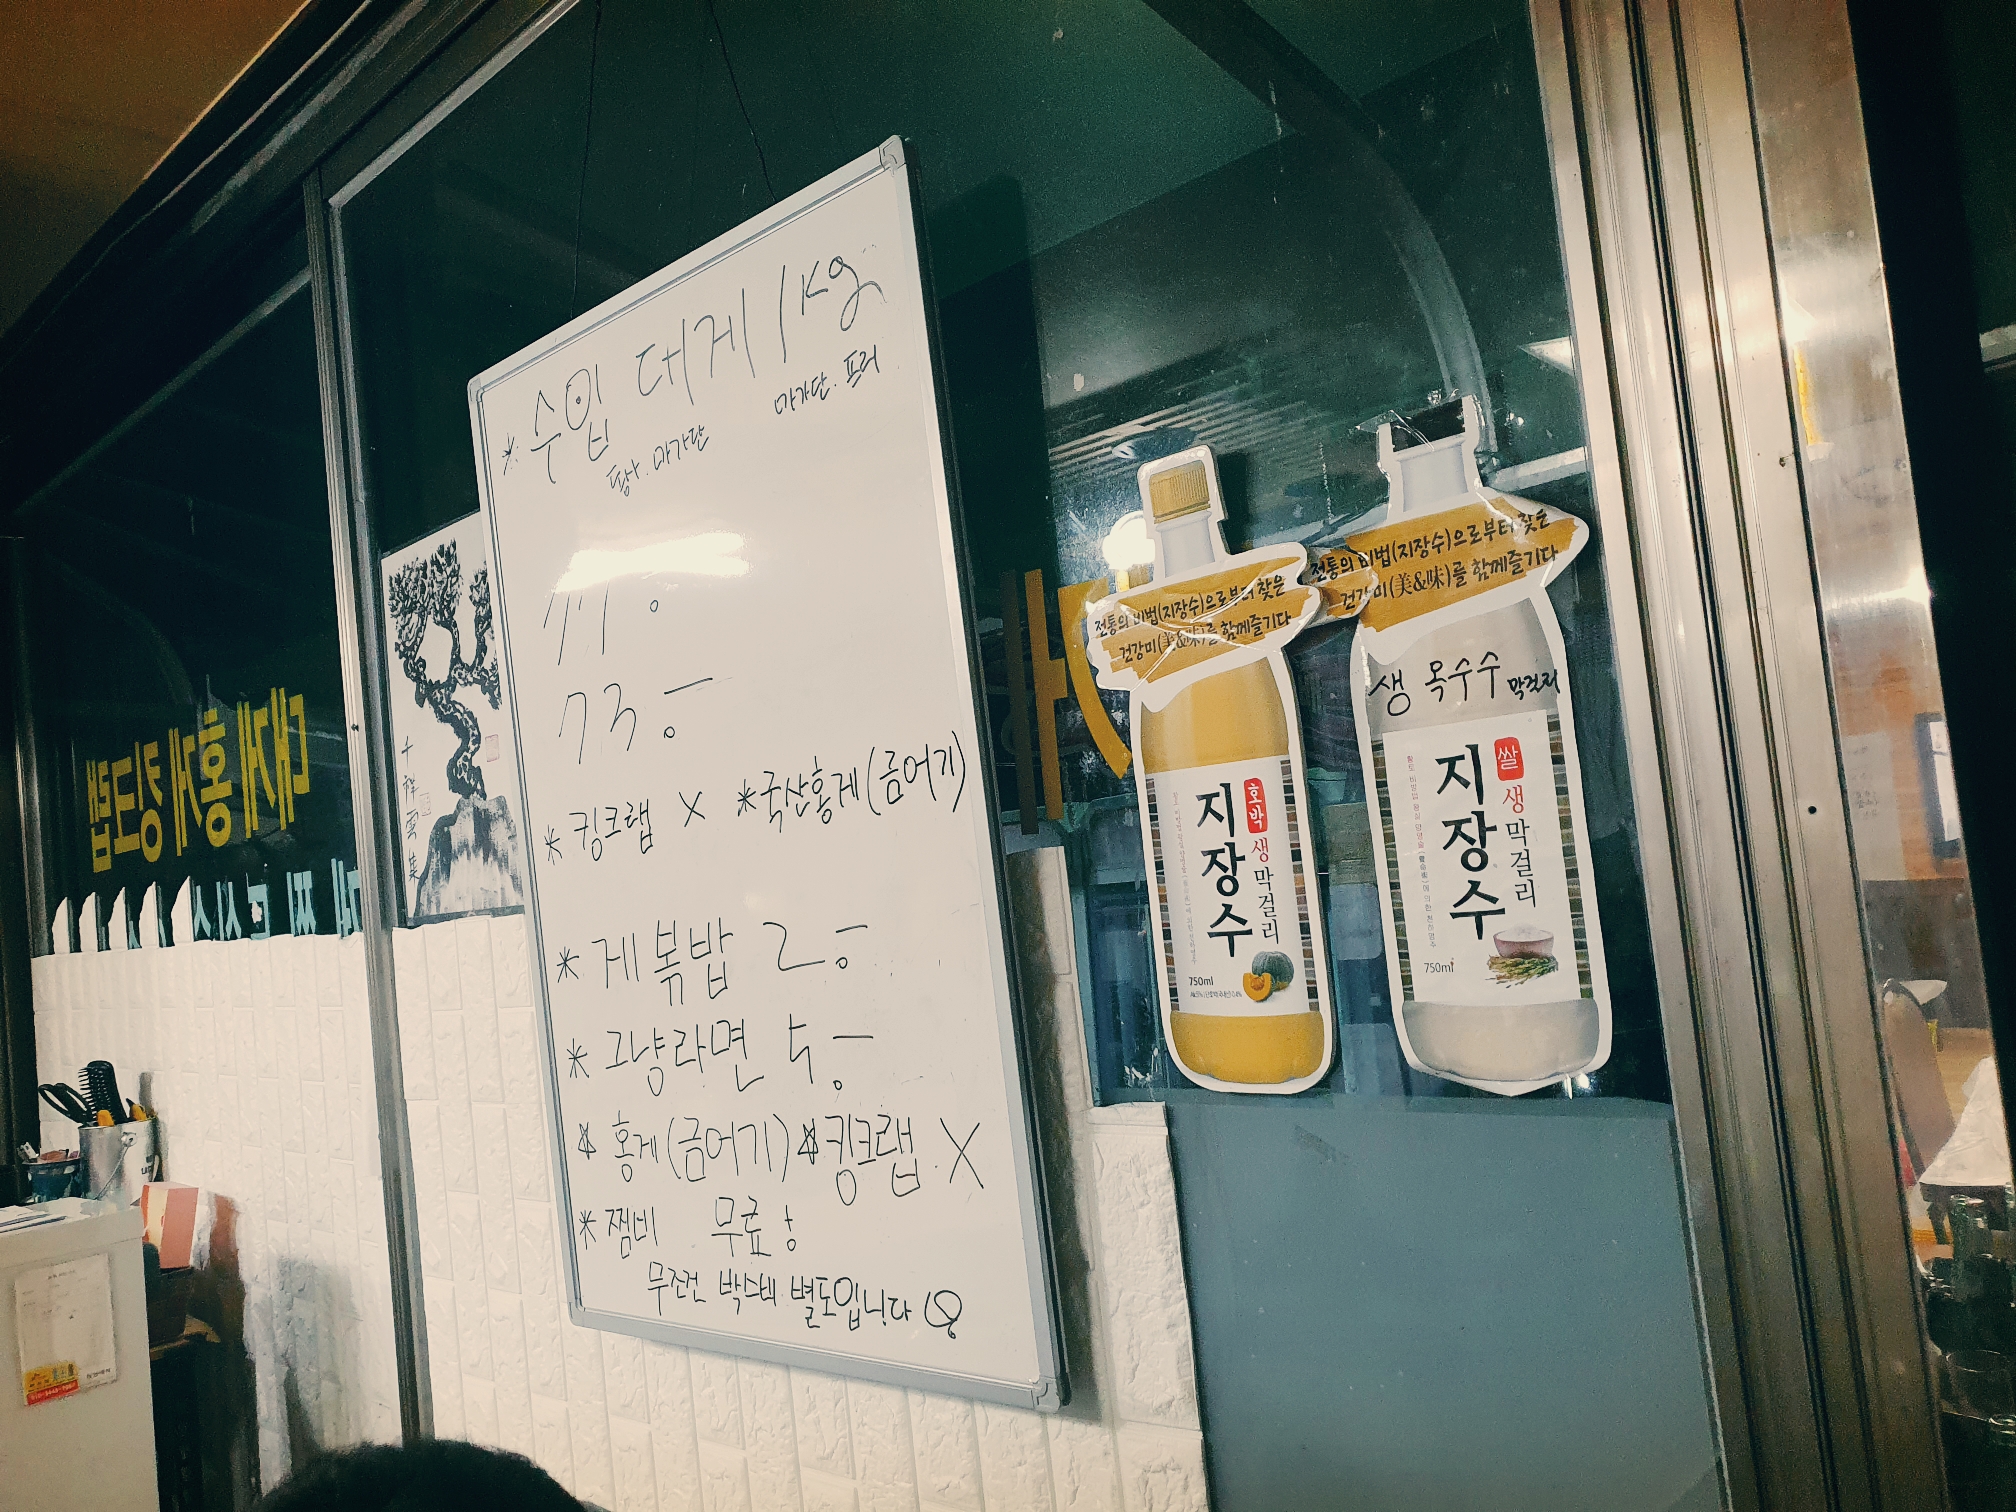 * 수입 대게 1kg
마가단. 프리
팡. 마가단
77.
73.-
* 킹크랩 X *국산홍게(금어기)
* 게볶밥 2.-
* 그냥라면 5.-
홍게(금어기) 킹크랩. X
* 찜비 무료
무조건 박스비 별도입니다
전통의 비법(지장수)으로부터 찾은
건강미(美&味)를 함께즐기다
호박생막걸리
지장수
750ml
전통의 비법(지장수)으로부터 찾은
건강미(美&味)를 함께즐기다
생 옥수수 막걸리
쌀생막걸리
지장수
750ml
대게 홍게 킹크랩